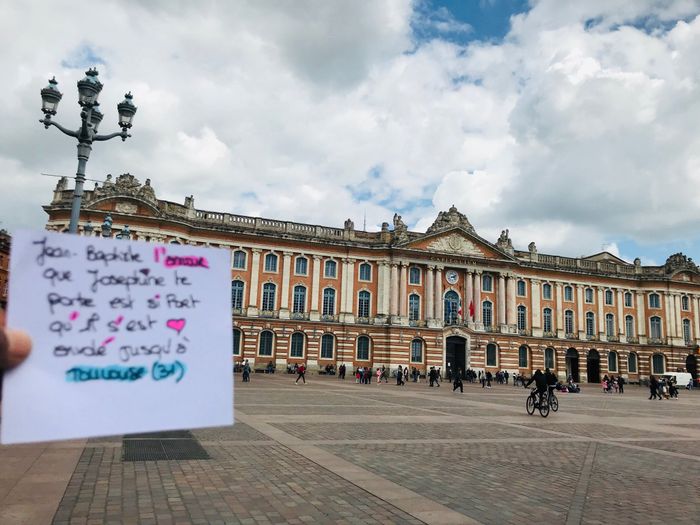 Jean-Baptiste l'amour
que Josephine te
porte est si fort
qu'il s'est
évadé jusqu'à
TOULOUSE (31)